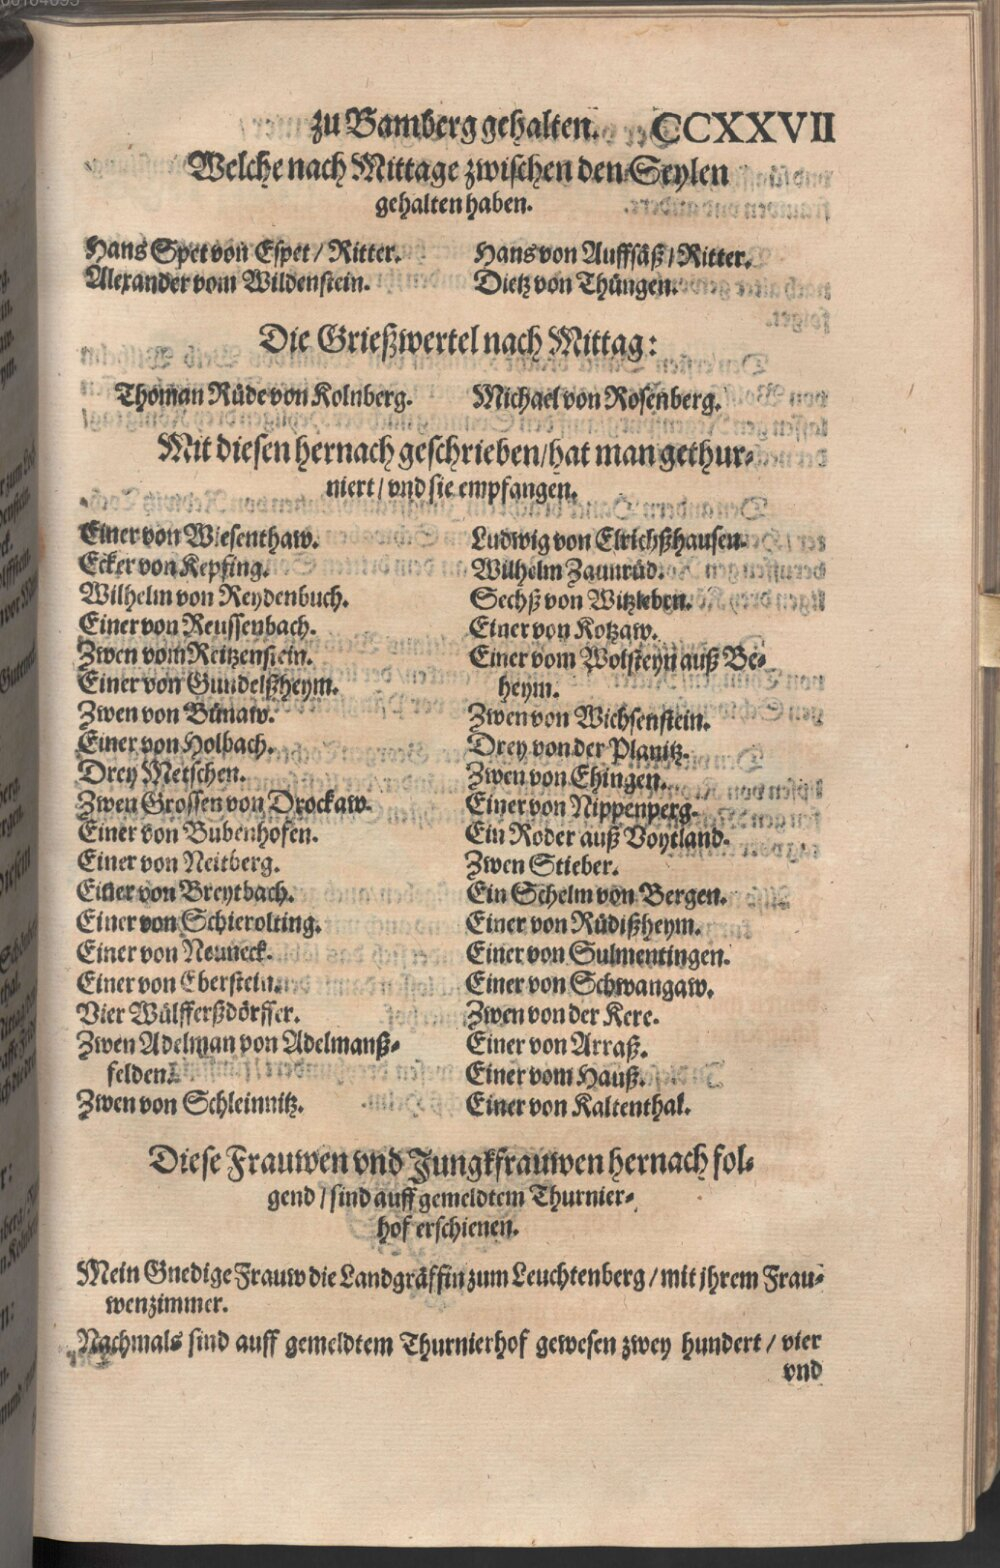 zu Bamberg gehalten. CCXXVII
Welche nach Mittage zwischen den Seylen
gehalten haben.
Hans Spet von Espet / Ritter.
Alexander vom Wildenstein.
Hans von Auffsäß / Ritter.
Dietz von Thüngen.
Die Grießwertel nach Mittag:
Thoman Rüde von Kolnberg.
Michael von Rosenberg.
Mit diesen hernach geschrieben / hat man gethur-
niert / vnd sie empfangen.
Einer von Wiesenthaw.
Ecker von Kepfing.
Wilhelm von Reydenbuch.
Einer von Reussenbach.
Zwen vom Reitzenstein.
Einer von Gundelßheym.
Zwen von Bünaw.
Einer von Holbach.
Drey Metschen.
Zwen Grossen von Drockaw.
Einer von Bubenhofen.
Einer von Neitberg.
Einer von Breytbach.
Einer von Schierolting.
Einer von Neuneck.
Einer von Eberstein.
Vier Wülfferßdörffer.
Zwen Adelman von Adelmanß-
felden.
Zwen von Schleinnitz.
Ludwig von Elrichßhausen.
Wilhelm Zaunrüd.
Sechß von Witzleben.
Einer von Kotzaw.
Einer vom Wolsteyn auß Be-
heym.
Zwen von Wichsenstein.
Drey von der Planitz.
Zwen von Ehingen.
Einer von Nippenperg.
Ein Roder auß Voytland.
Zwen Stieber.
Ein Schelm von Bergen.
Einer von Rüdißheym.
Einer von Sulmentingen.
Einer von Schwangaw.
Zwen von der Kere.
Einer von Arraß.
Einer vom Hauß.
Einer von Kaltenthal.
Diese Frauwen vnd Jungkfrauwen hernach fol-
gend / sind auff gemeldtem Thurnier-
hof erschienen.
Mein Gnedige Frauw die Landgräffin zum Leuchtenberg / mit jhrem Frau-
wenzimmer.
Nachmals sind auff gemeldtem Thurnierhof gewesen zwey hundert / vier
vnd